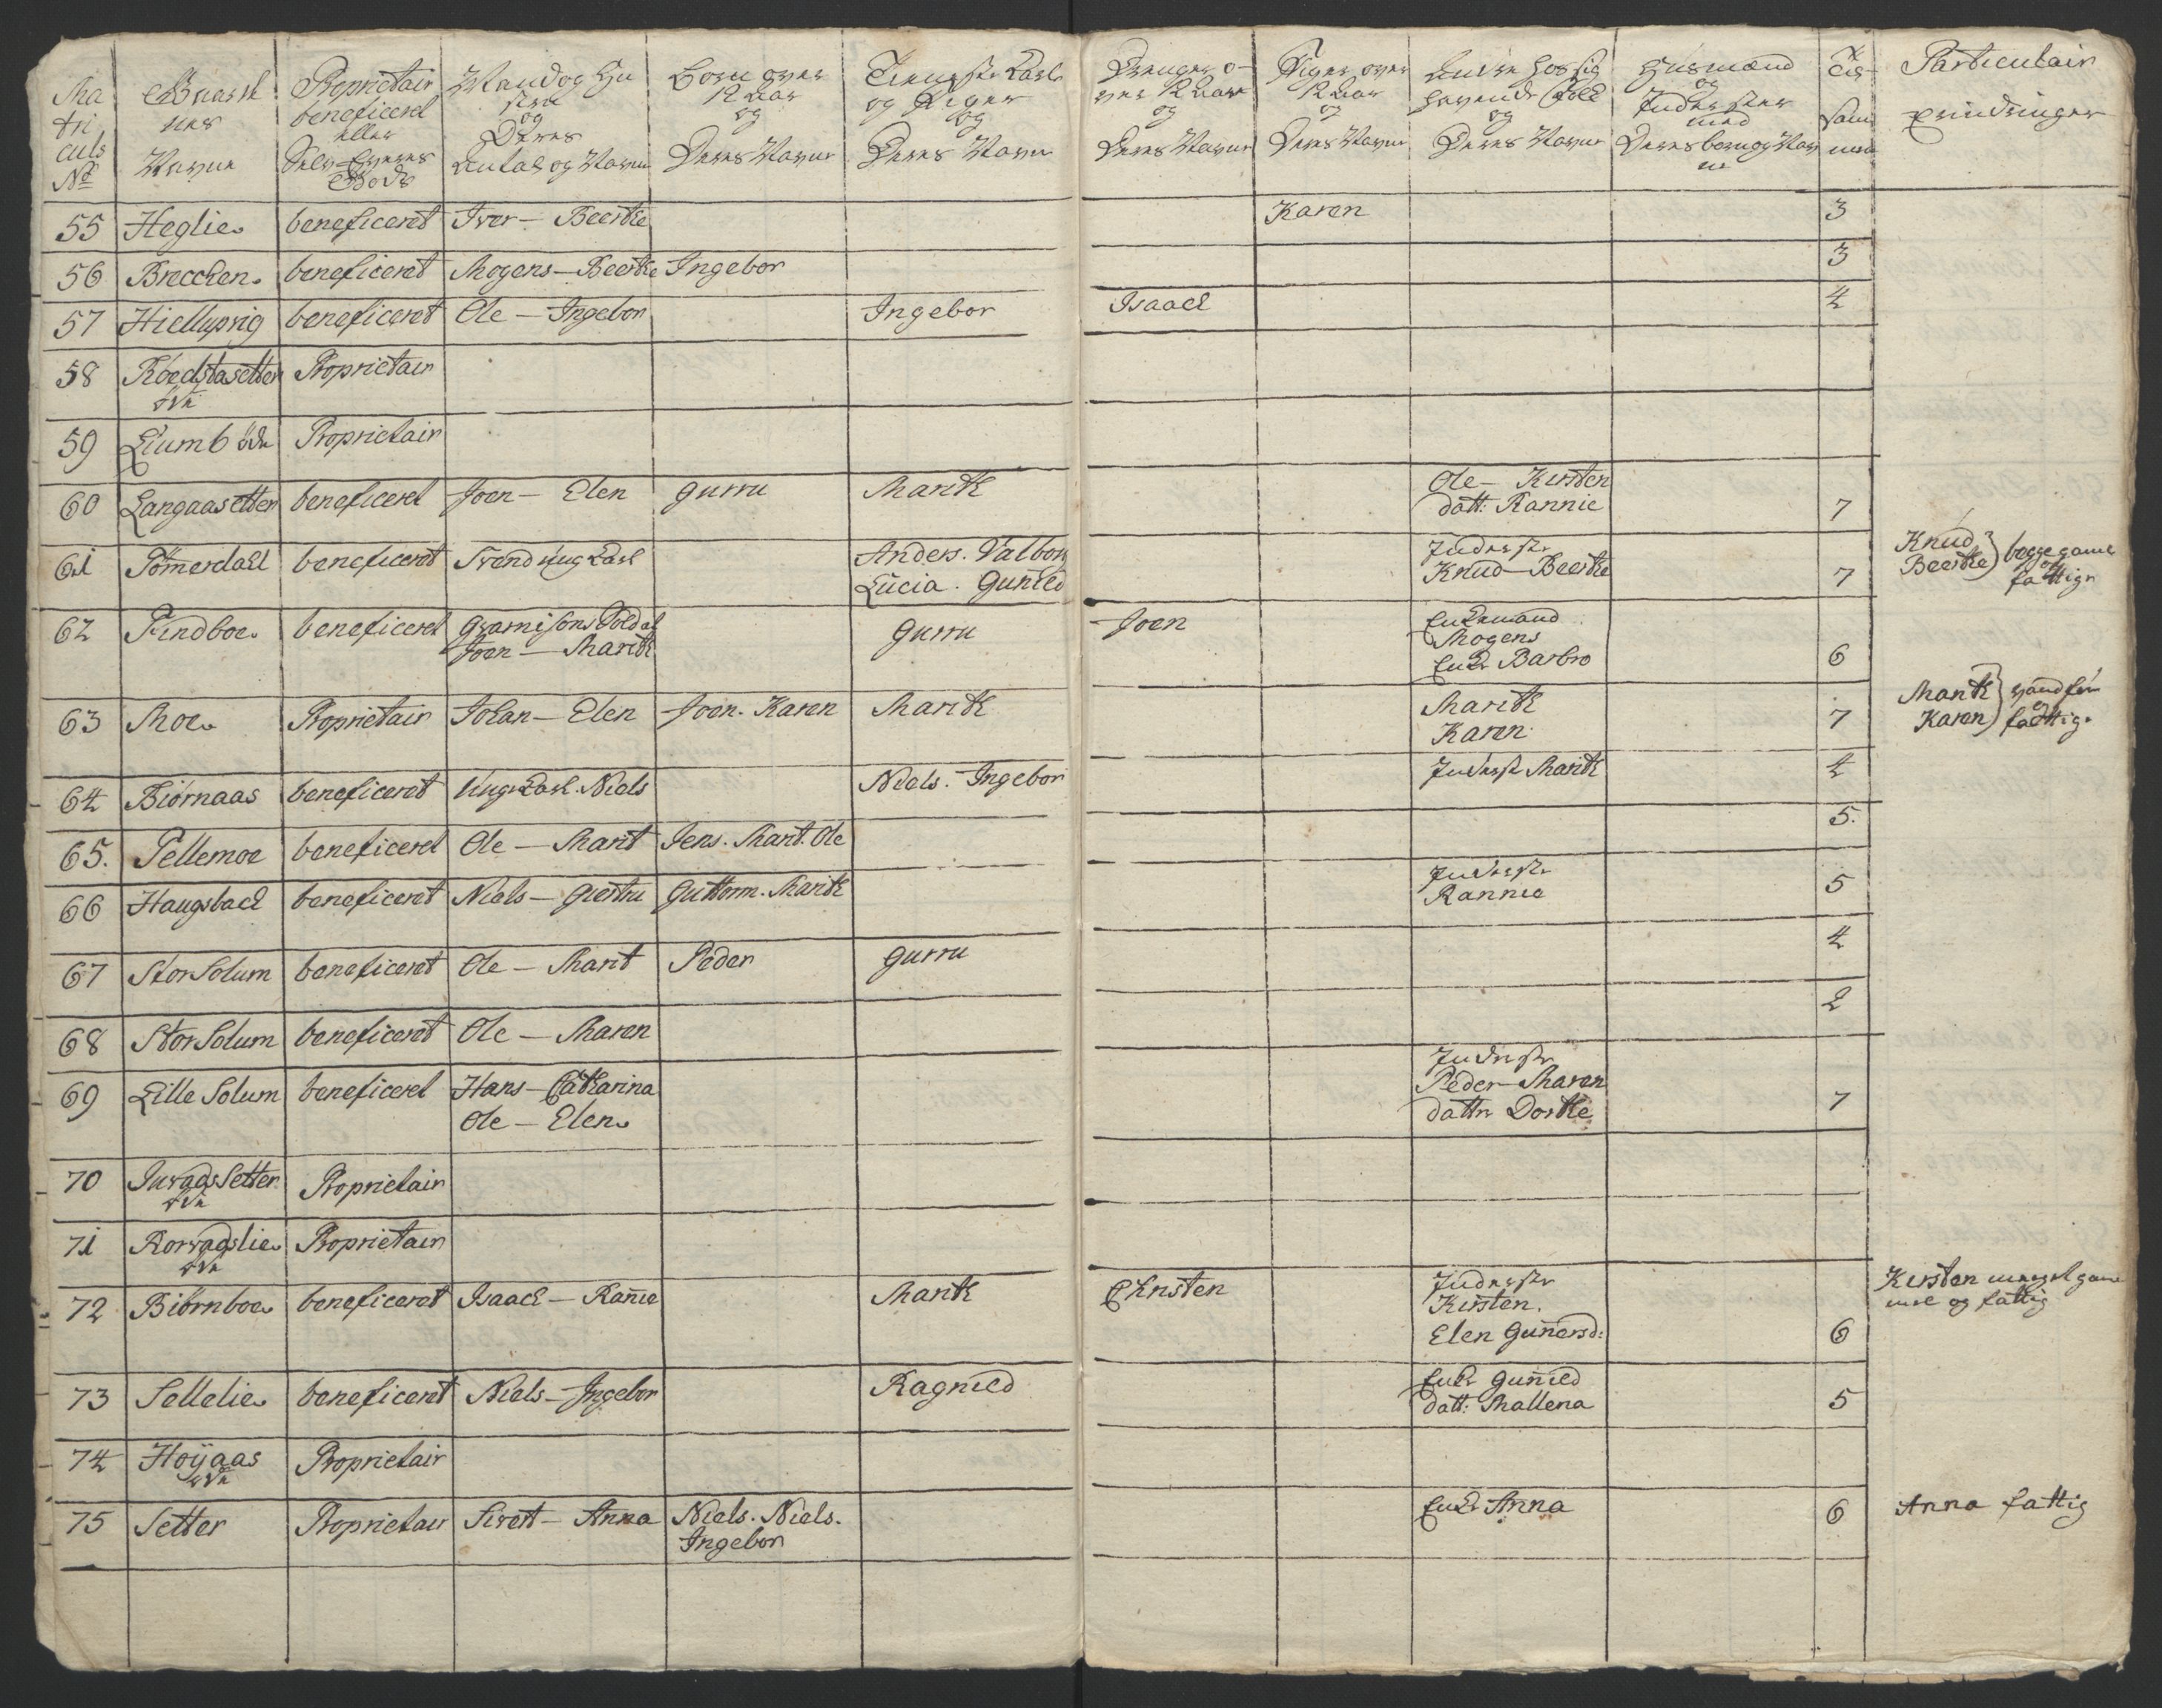 Ma
tri
culs
No
Navne
Proprietair
beneficeret
eller
Mand og Hu
og
Deres
Antal og Navne
Born over
12 Aar
og
Deres Navne
og Piger
og
Deres Navne
Drenge o-
ver 12 Aar
og
Deres Navne
Piger over
12 Aar
og
Deres Navne
og
Deres Navne
Husmænd
og
Inderster
med
Deres born og Nav
ne
Til-
sam
men
Particulair
Erindringer
55 Heglie beneficeret Iver — Beerthe Karen 3
56 Brecchen beneficeret Mogens — Beerthe Ingebor 3
57 beneficeret Ole — Ingebor Ingebor Isaach 4
58 Roedstasetter Proprietair
öde
59 Lium öde Proprietair
60 Langaasetter beneficeret Joen — Elen gurru Marith Ole — Kirsten
datt: Rannie 7
61 Tømerdahl beneficeret Svend ung Karl Anders. Valbor Inderste Knud } begge gaml
Lucia. Gunild Knud — Beerthe 7 Beerthe } og fattige
62 Findboe beneficeret Gvarnisons Soldat
Joen — Marith gurru Joen Enkemand
Mogens
Enke Barbro 6
63 Moe Proprietair Johan — Elen Joen. Karen Marith Marith
Karen 7 Marith } vanfør
Karen } og fattig.
64 Biörnaas beneficeret Ung Karl. Niels Niels. Ingebor Inderste Marith 4
65. Tellemoe beneficeret Ole — Marit Jens. Marit. Ole 5.
66 Haugsbach beneficeret Niels — giertru Guttorm. Marith Inderste
Rannie 5
67 Stor Solum beneficeret Ole — Marit Peder gurru 4
68 Stor Solum beneficeret Ole — Maren 2
69 Lille Solum beneficeret Hans — Catharina
Ole — Elen Inderste
Peder — Maren
datter Dorthe 7
70 Setter Proprietair
öde
71 Rorvadslie Proprietair
öde
72 Biörnboe beneficeret Isaach — Rañie Marith Christen Inderste
Kirsten.
Elen Guñersd: 6 Kirsten meget gam
mel og fattig
73 Sellelie beneficeret Niels — Ingebor Ragnild Enke Guñild
datt: Mallena 5
74 Höÿaas Proprietair
öde
75 Setter Proprietair Sivert — Anna Niels. Niels.
Ingebor Enke Anna 6 Anna fattig